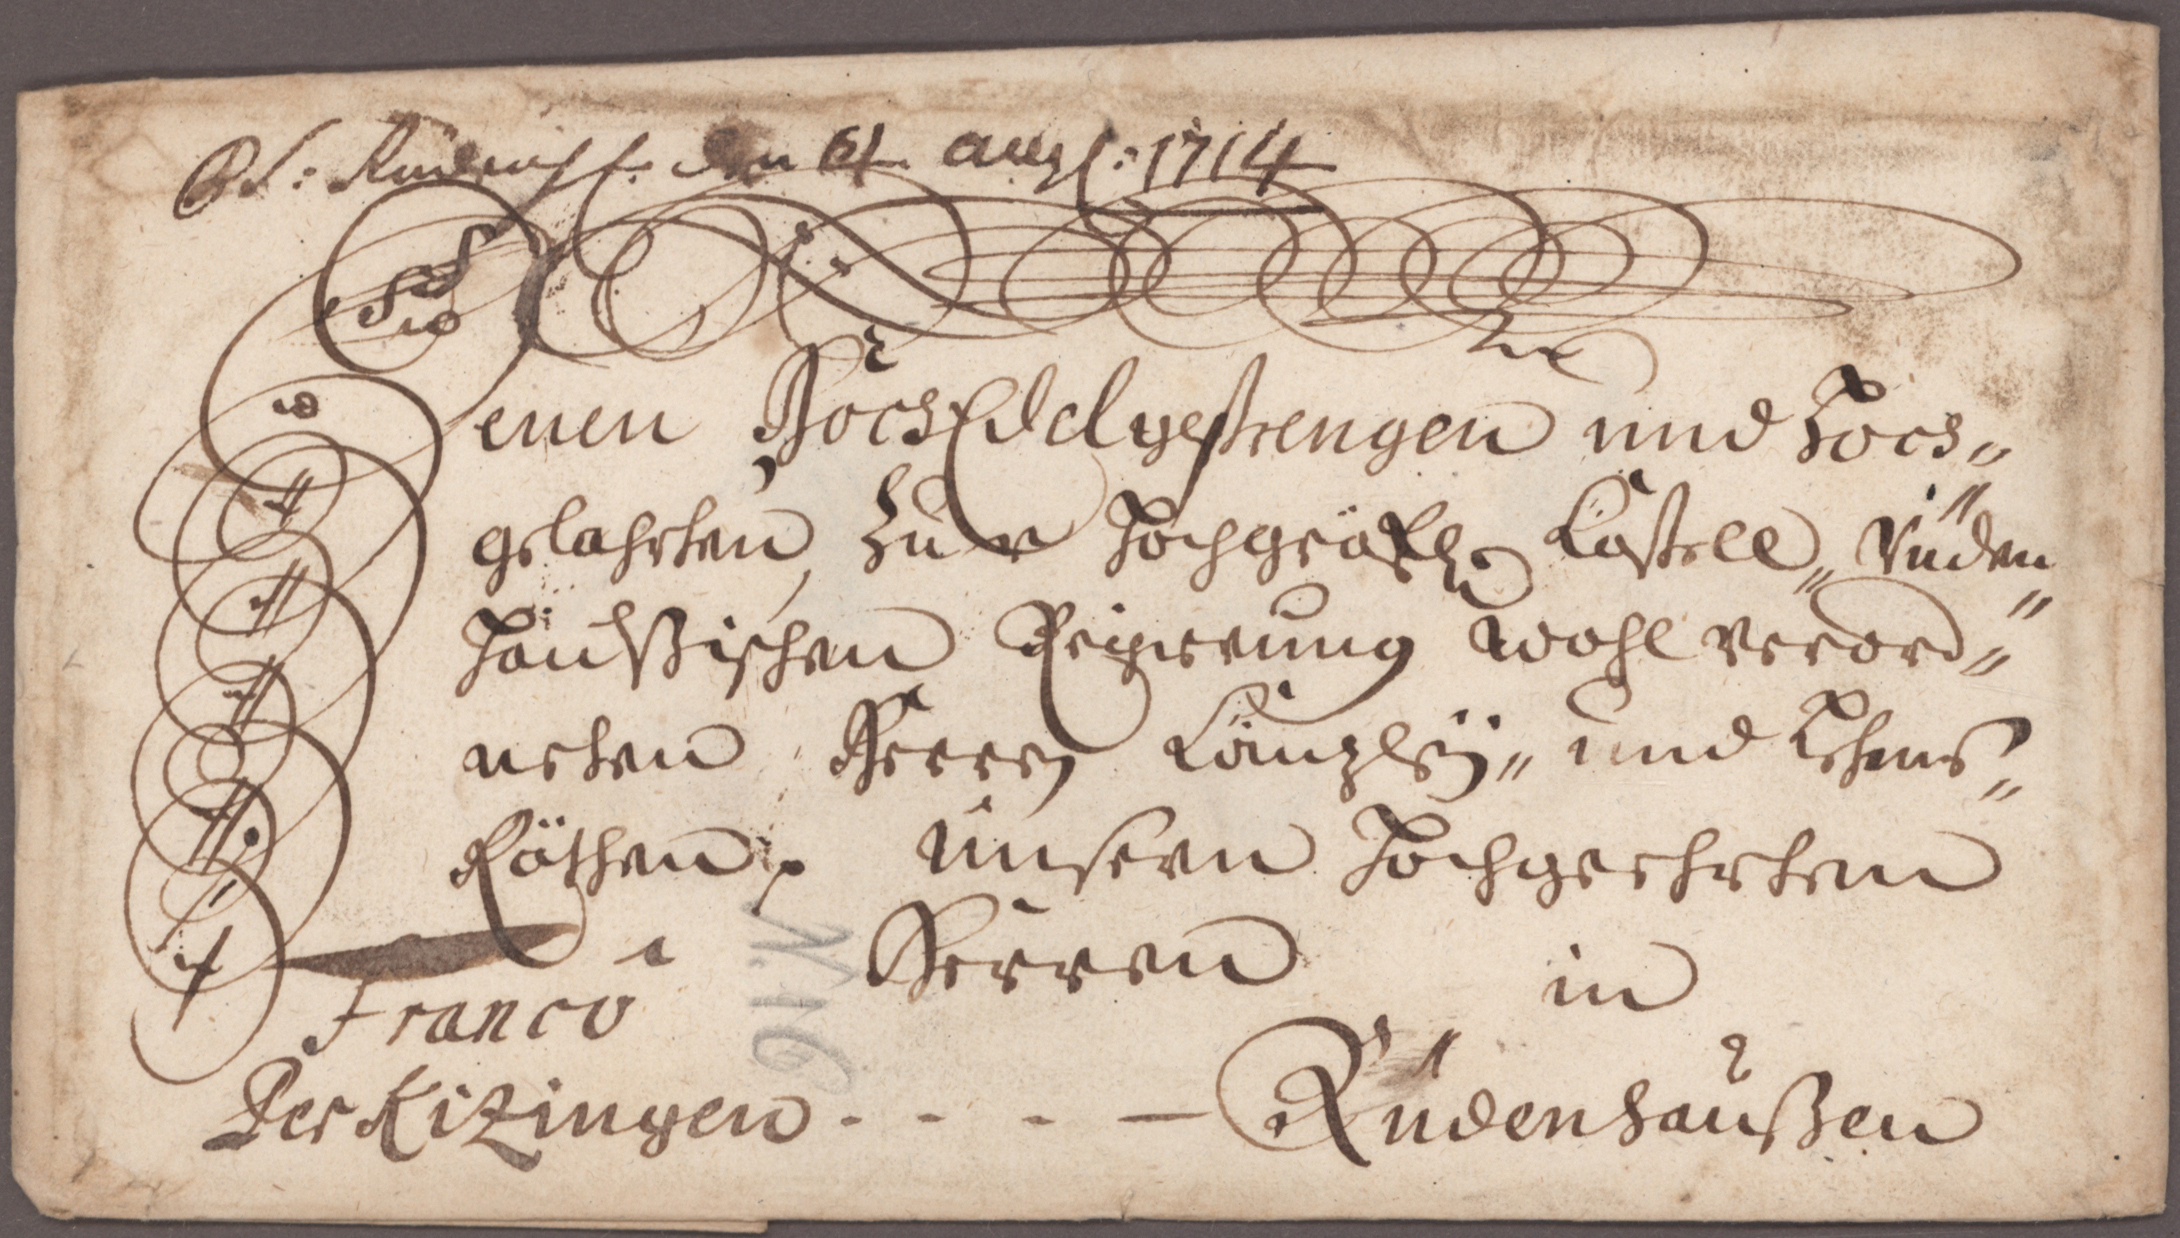 Ps: Rüdenhs. den 6t. aug: 1714
Denen HochEdelgestrengen und Hoch„
gelahrten, zu der Hochgräffl. Castell„ Rüden„
haußischen Regierung wohl verord„
neten Herren Cantzley„ und Lehens„
Räthen, Unsern Hochgeehrten
Herren in
Franco
Per Kitzingen - - - — Rüdenhaußen
N. 16